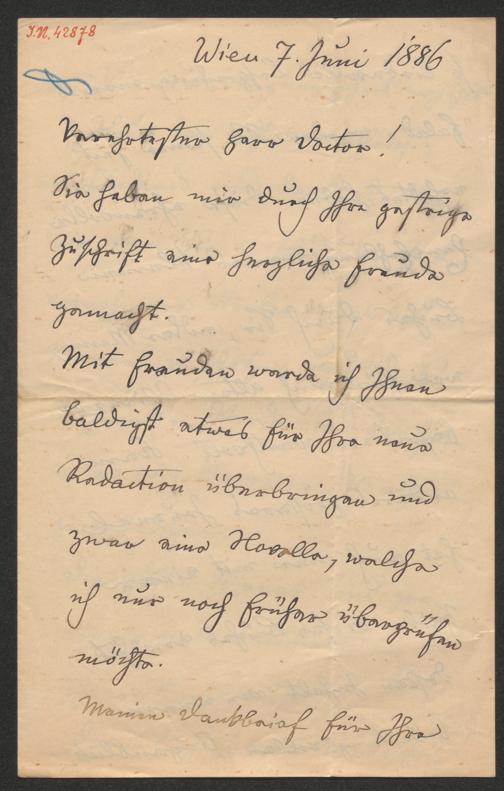 I.N. 42878
Wien 7. Juni 1886
Verehrtester Herr Doctor!
Sie haben mir durch Ihre gestrige
Zuschrift eine herzliche Freude
gemacht.
Mit Freuden werde ich Ihnen
baldigst etwas für Ihre neue
Redaction überbringen und
zwar eine Novelle, welche
ich nur noch früher überprüfen
möchte.
Meinen Dankbrief für Ihre